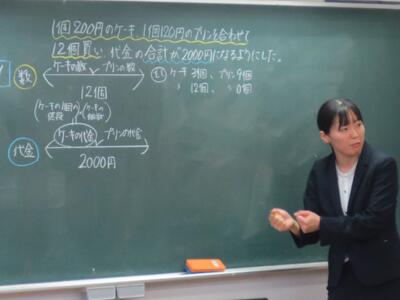 1個200円のケーキ 1個120円のプリンを合わせて
12個買い、代金の合計が2000円になるようにした。
数
ケーキの数 プリンの数
12個
ケーキ 3個、プリン9個
〃 12個、〃 0個
(ケーキ1個の値段)×(ケーキの個数)
代金
ケーキの代金 プリンの代金
2000円